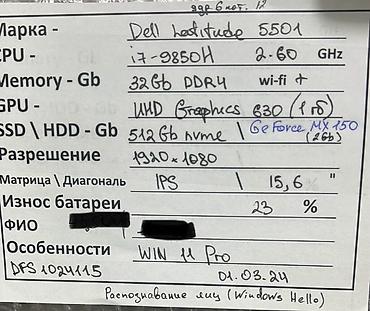 Марка - Dell Latitude 5501
CPU - i7-9850H 2.60 GHz
Memory - Gb 32Gb DDR4 wi-fi +
GPU - UHD Graphics 630 (1 гб)
SSD \ HDD - Gb 512Gb nvme \ GeForce MX150 (2Gb)
Разрешение 1920 x 1080
Матрица \ Диагональ IPS \ 15,6 "
Износ батареи 23 %
ФИО
Особенности WIN 11 Pro
DFS1024115 01.03.24
Распознавание лиц (Windows Hello)